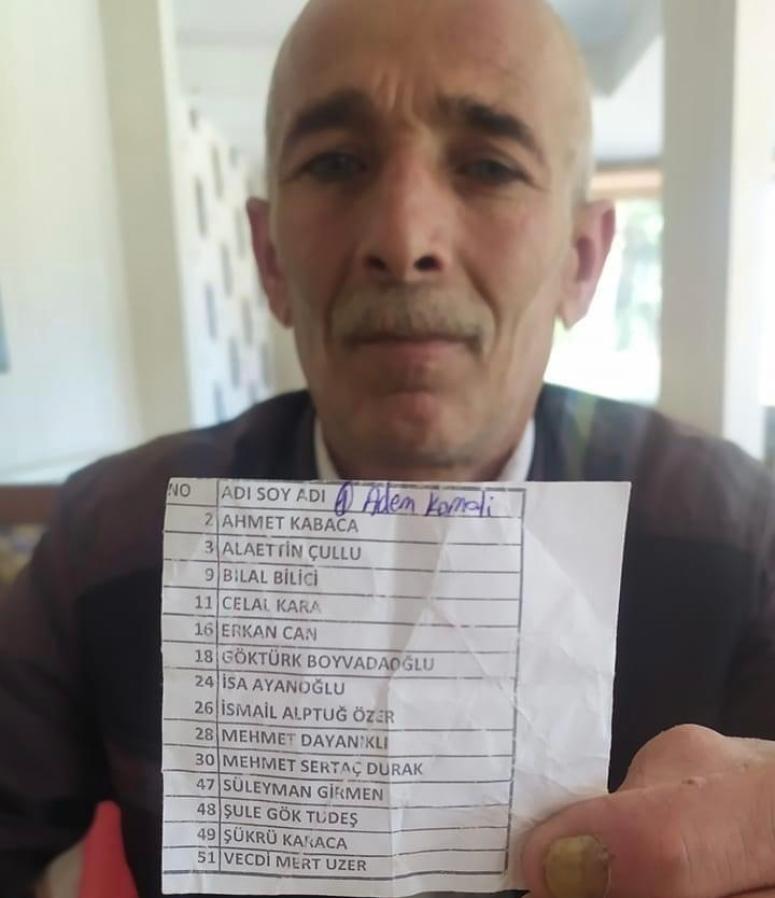 NO ADI SOY ADI ① Adem Komali
2 AHMET KABACA
3 ALAETTİN ÇULLU
9 BİLAL BİLİCİ
11 CELAL KARA
16 ERKAN CAN
18 GÖKTÜRK BOYVADAOĞLU
24 İSA AYANOĞLU
26 İSMAİL ALPTUĞ ÖZER
28 MEHMET DAYANIKLI
30 MEHMET SERTAÇ DURAK
47 SÜLEYMAN GİRMEN
48 ŞULE GÖK TUDEŞ
49 ŞÜKRÜ KARACA
51 VECDİ MERT UZER